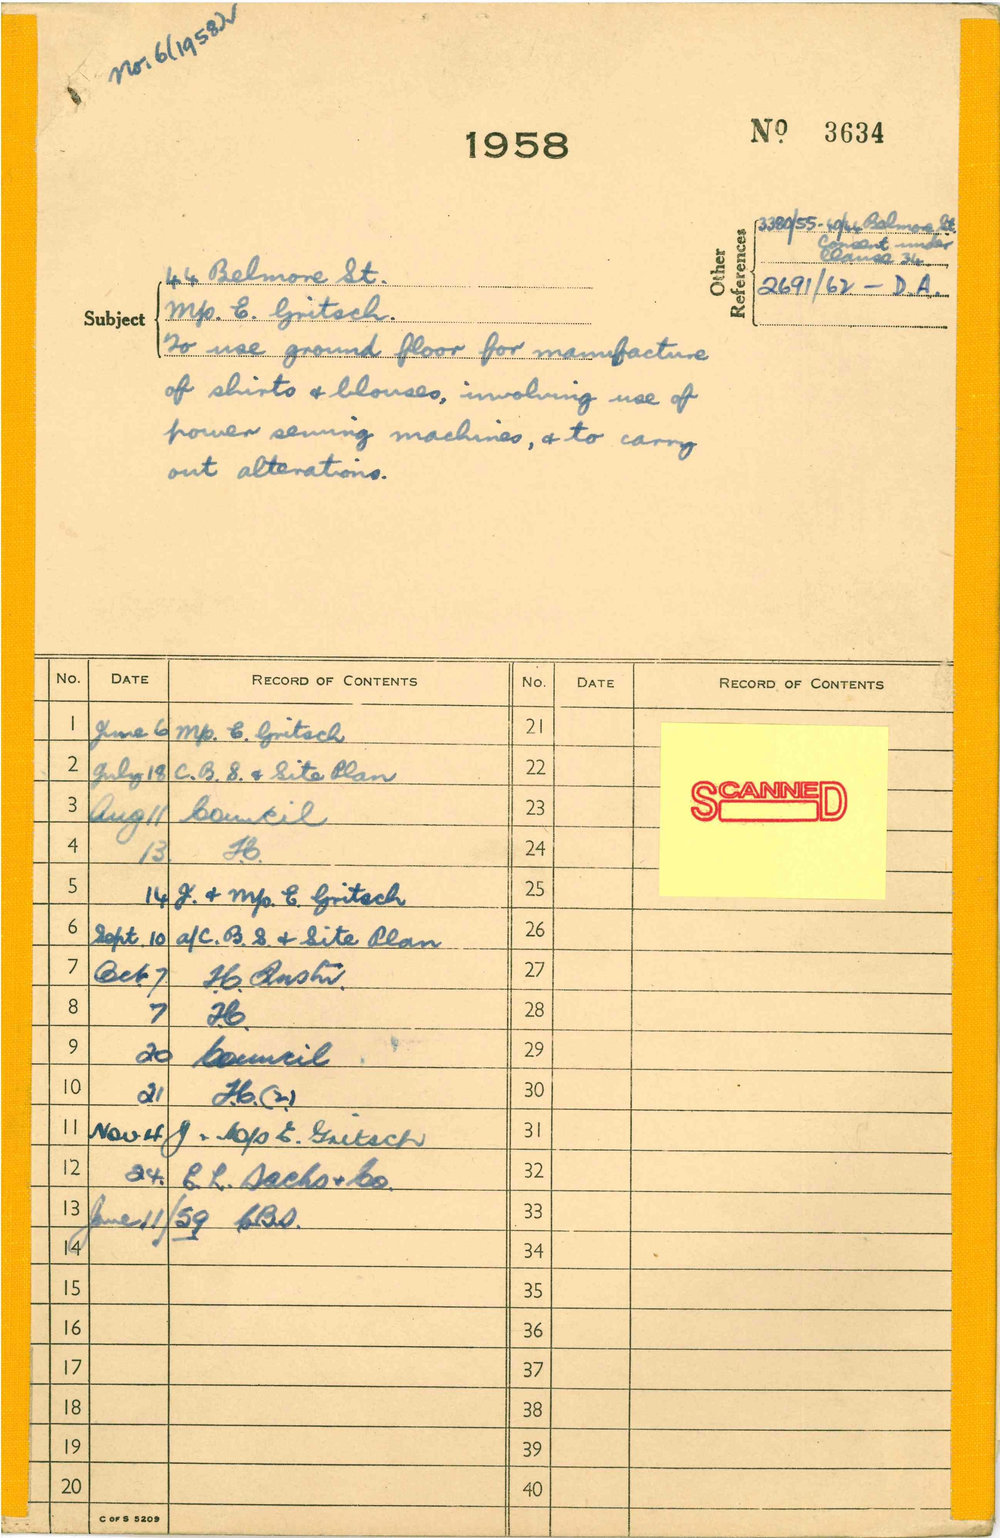 No. 6(1958)
1958
No. 3634
Other References
3380/55-40/44 Belmore St.
Consent under
Clause 34.
2691/62 - D.A.
Subject
44 Belmore St.
Mp. E. Gritsch.
To use ground floor for manufacture
of shirts & blouses, involving use of
power sewing machines, & to carry
out alterations.
No. DATE RECORD OF CONTENTS No. DATE RECORD OF CONTENTS
1 June 6 Mp. E. Gritsch 21
2 July 18 C.B.S. & Site Plan 22
SCANNED
3 Aug 11 Council 23
4 13. H. 24
5 14 J. & Mp. E. Gritsch 25
6 Sept. 10 a/C.B.S & Site Plan 26
7 Oct 7 H. 27
8 7 H. 28
9 20 Council 29
10 21 H.(2) 30
11 Nov 4 J. E. Gritsch 31
12 24. E.L. Sachs & Co. 32
13 June 11/59 C.B.S. 33
14 34
15 35
16 36
17 37
18 38
19 39
20 40
C OF S 5209